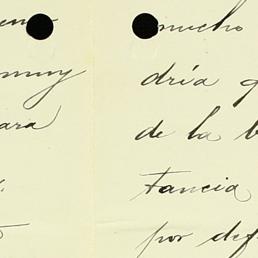 muy
ara
mucho
dría
de la b
tancia
por def